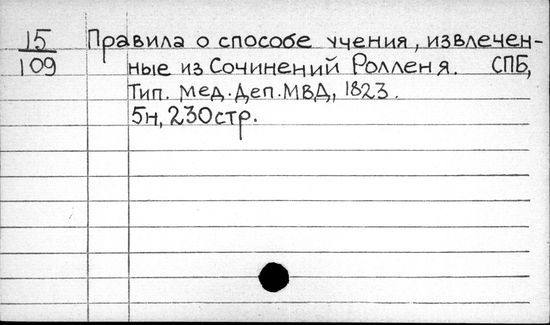 15 Правила о способе учения, извлечен-
109 ные из Сочинений Ролленя. СПБ,
Тип. Мед. Деп. МВД, 1823.
5н, 230стр.